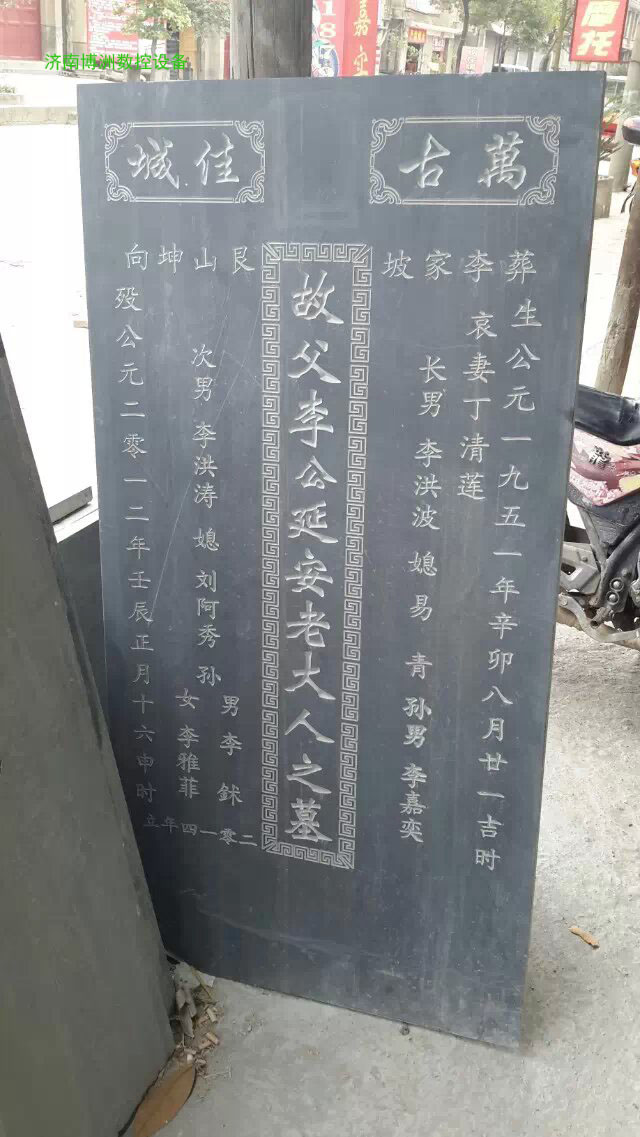 济南博洲数控设备
摩托
萬古
佳城
葬李家坡
生公元一九五一年辛卯八月廿一吉时
哀妻丁清莲
长男 李洪波 媳 易青 孙男 李嘉奕
故父李公延安老大人之墓
艮山坤向
次男 李洪涛 媳 刘阿秀 孙
男 李
女 李雅菲
殁公元二零一二年壬辰正月十六申时
二零一四年立